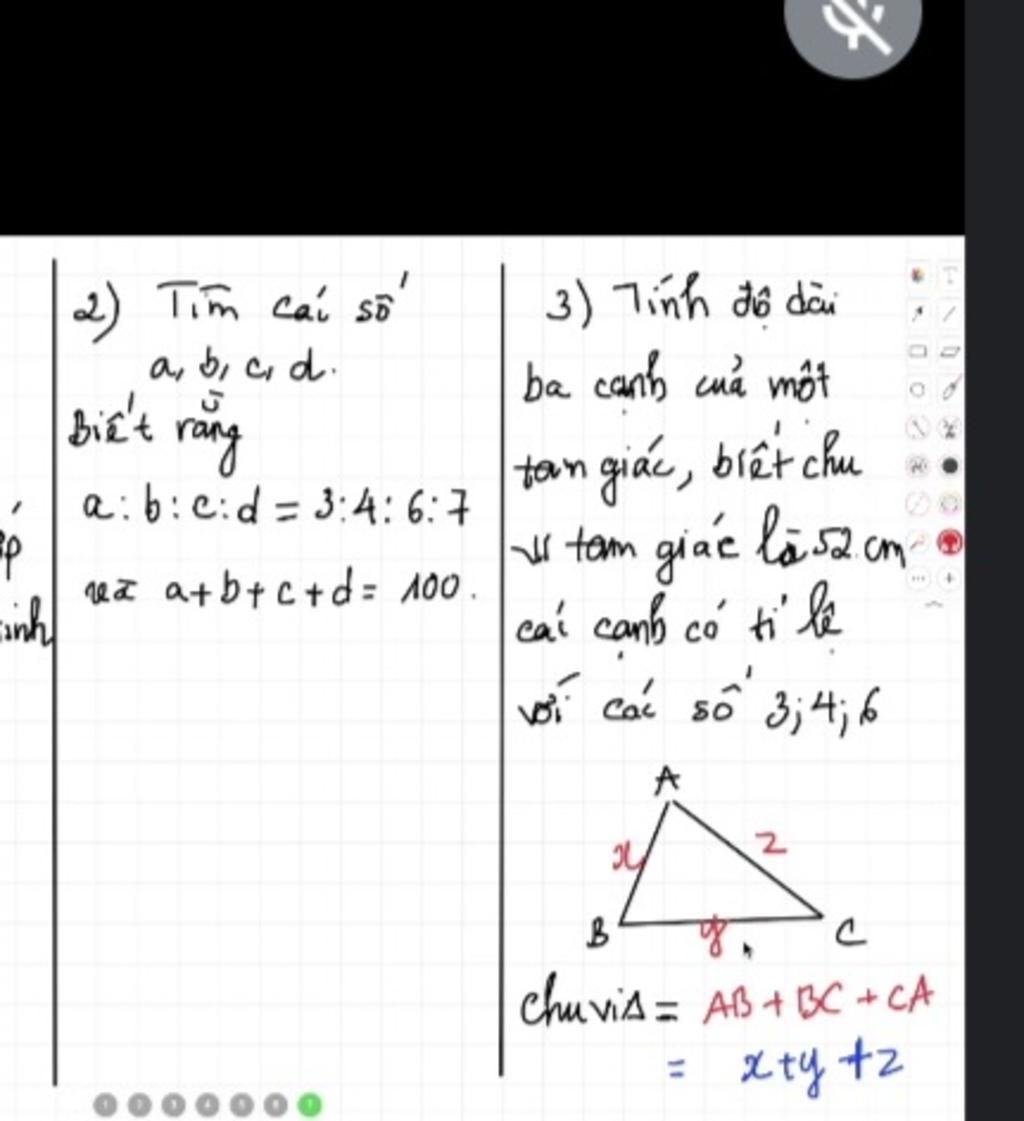 2) Tìm các số
a, b, c, d.
Biết rằng
a : b : c : d = 3 : 4 : 6 : 7
và a + b + c + d = 100.
3) Tính độ dài
ba cạnh của một
tam giác, biết chu
vi tam giác là 52 cm
các cạnh có tỉ lệ
với các số 3; 4; 6
A
x
z
B
y
C
Chu vi Δ = AB + BC + CA
= x + y + z